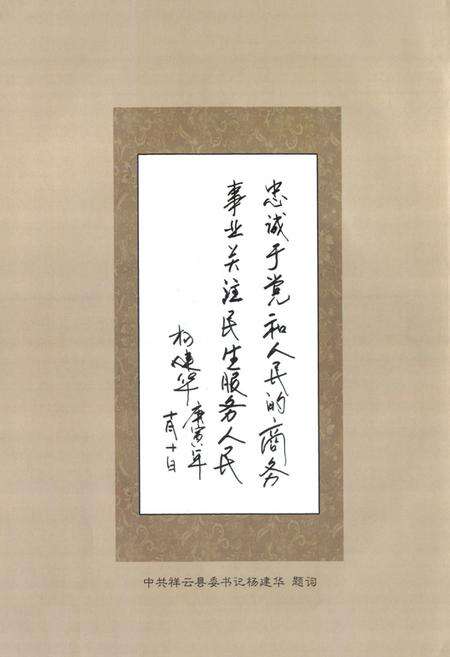 忠诚于党和人民的商务
事业关注民生服务人民
杨建华庚寅年
十月十日
中共祥云县委书记杨建华 题词